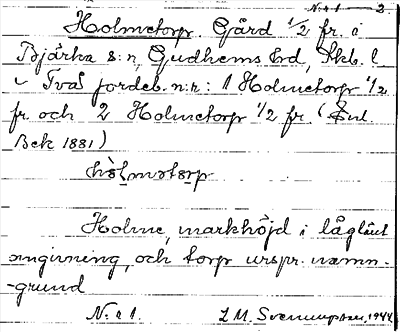 N:r 1 2.
Holmetorp. Gård 1/2 fr. i
Bjärka s:n, Gudhems hd, Skb. l
i Två jordeb. n:r: 1 Holmetorp 1/2
fr. och 2 Holmetorp 1/2 fr. (Enl.
Bek 1881)
hòlmøtørp
Holme, markhöjd i låglänt
omgivning, och torp urspr. namn-
-grund
N:r 1. L M. Svenungsson, 1944